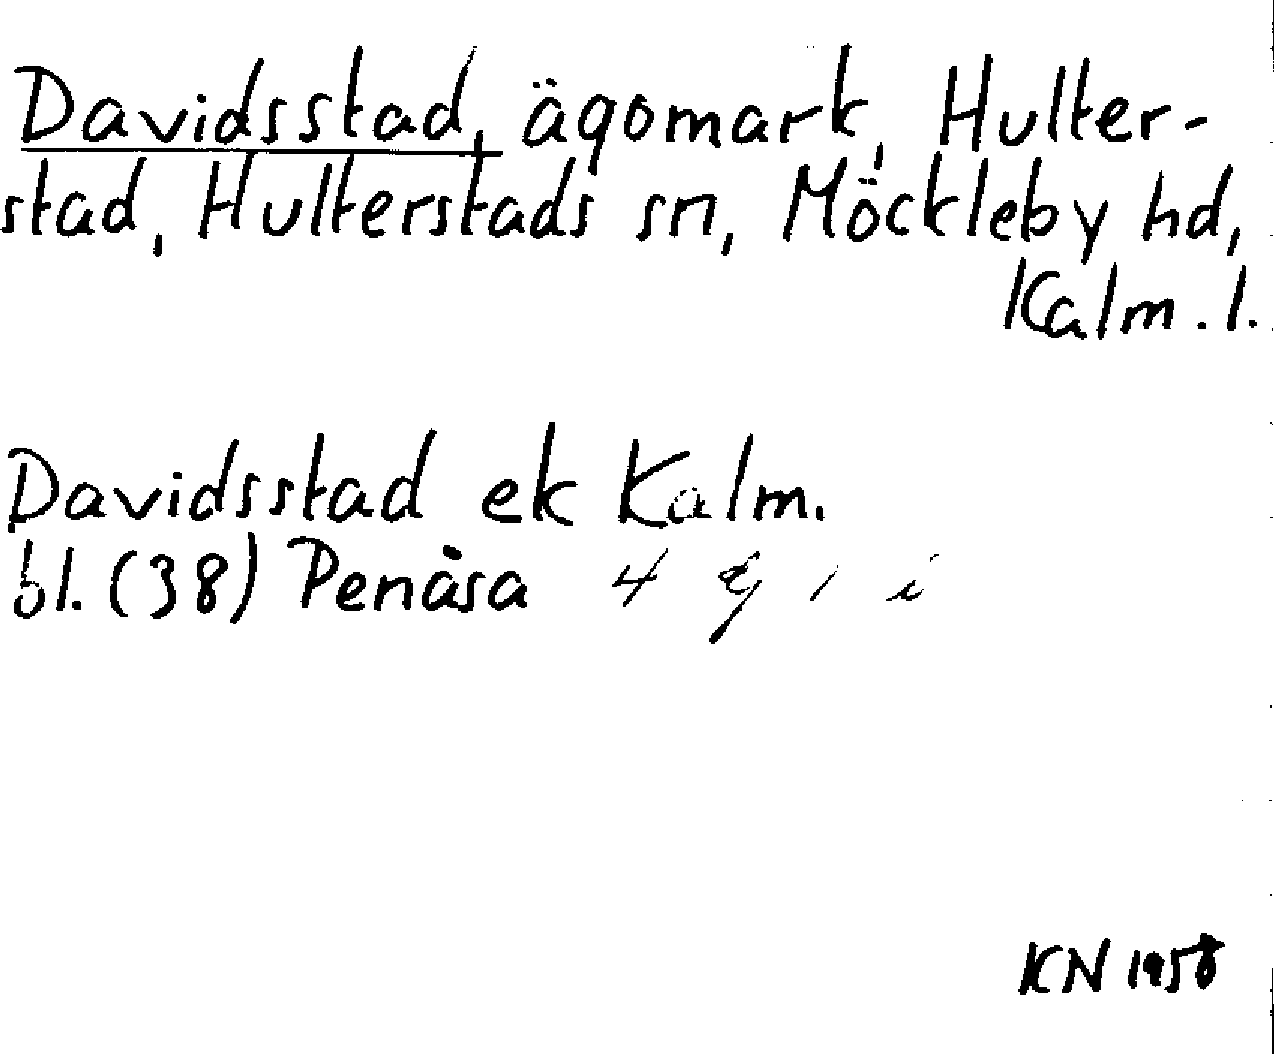 Davidsstad, ägomark, Hulter-
stad, Hulterstads sn, Möckleby hd,
Kalm. l.
Davidsstad ek Kalm.
bl. (38) Penåsa 4 g 1 i
KN 1958